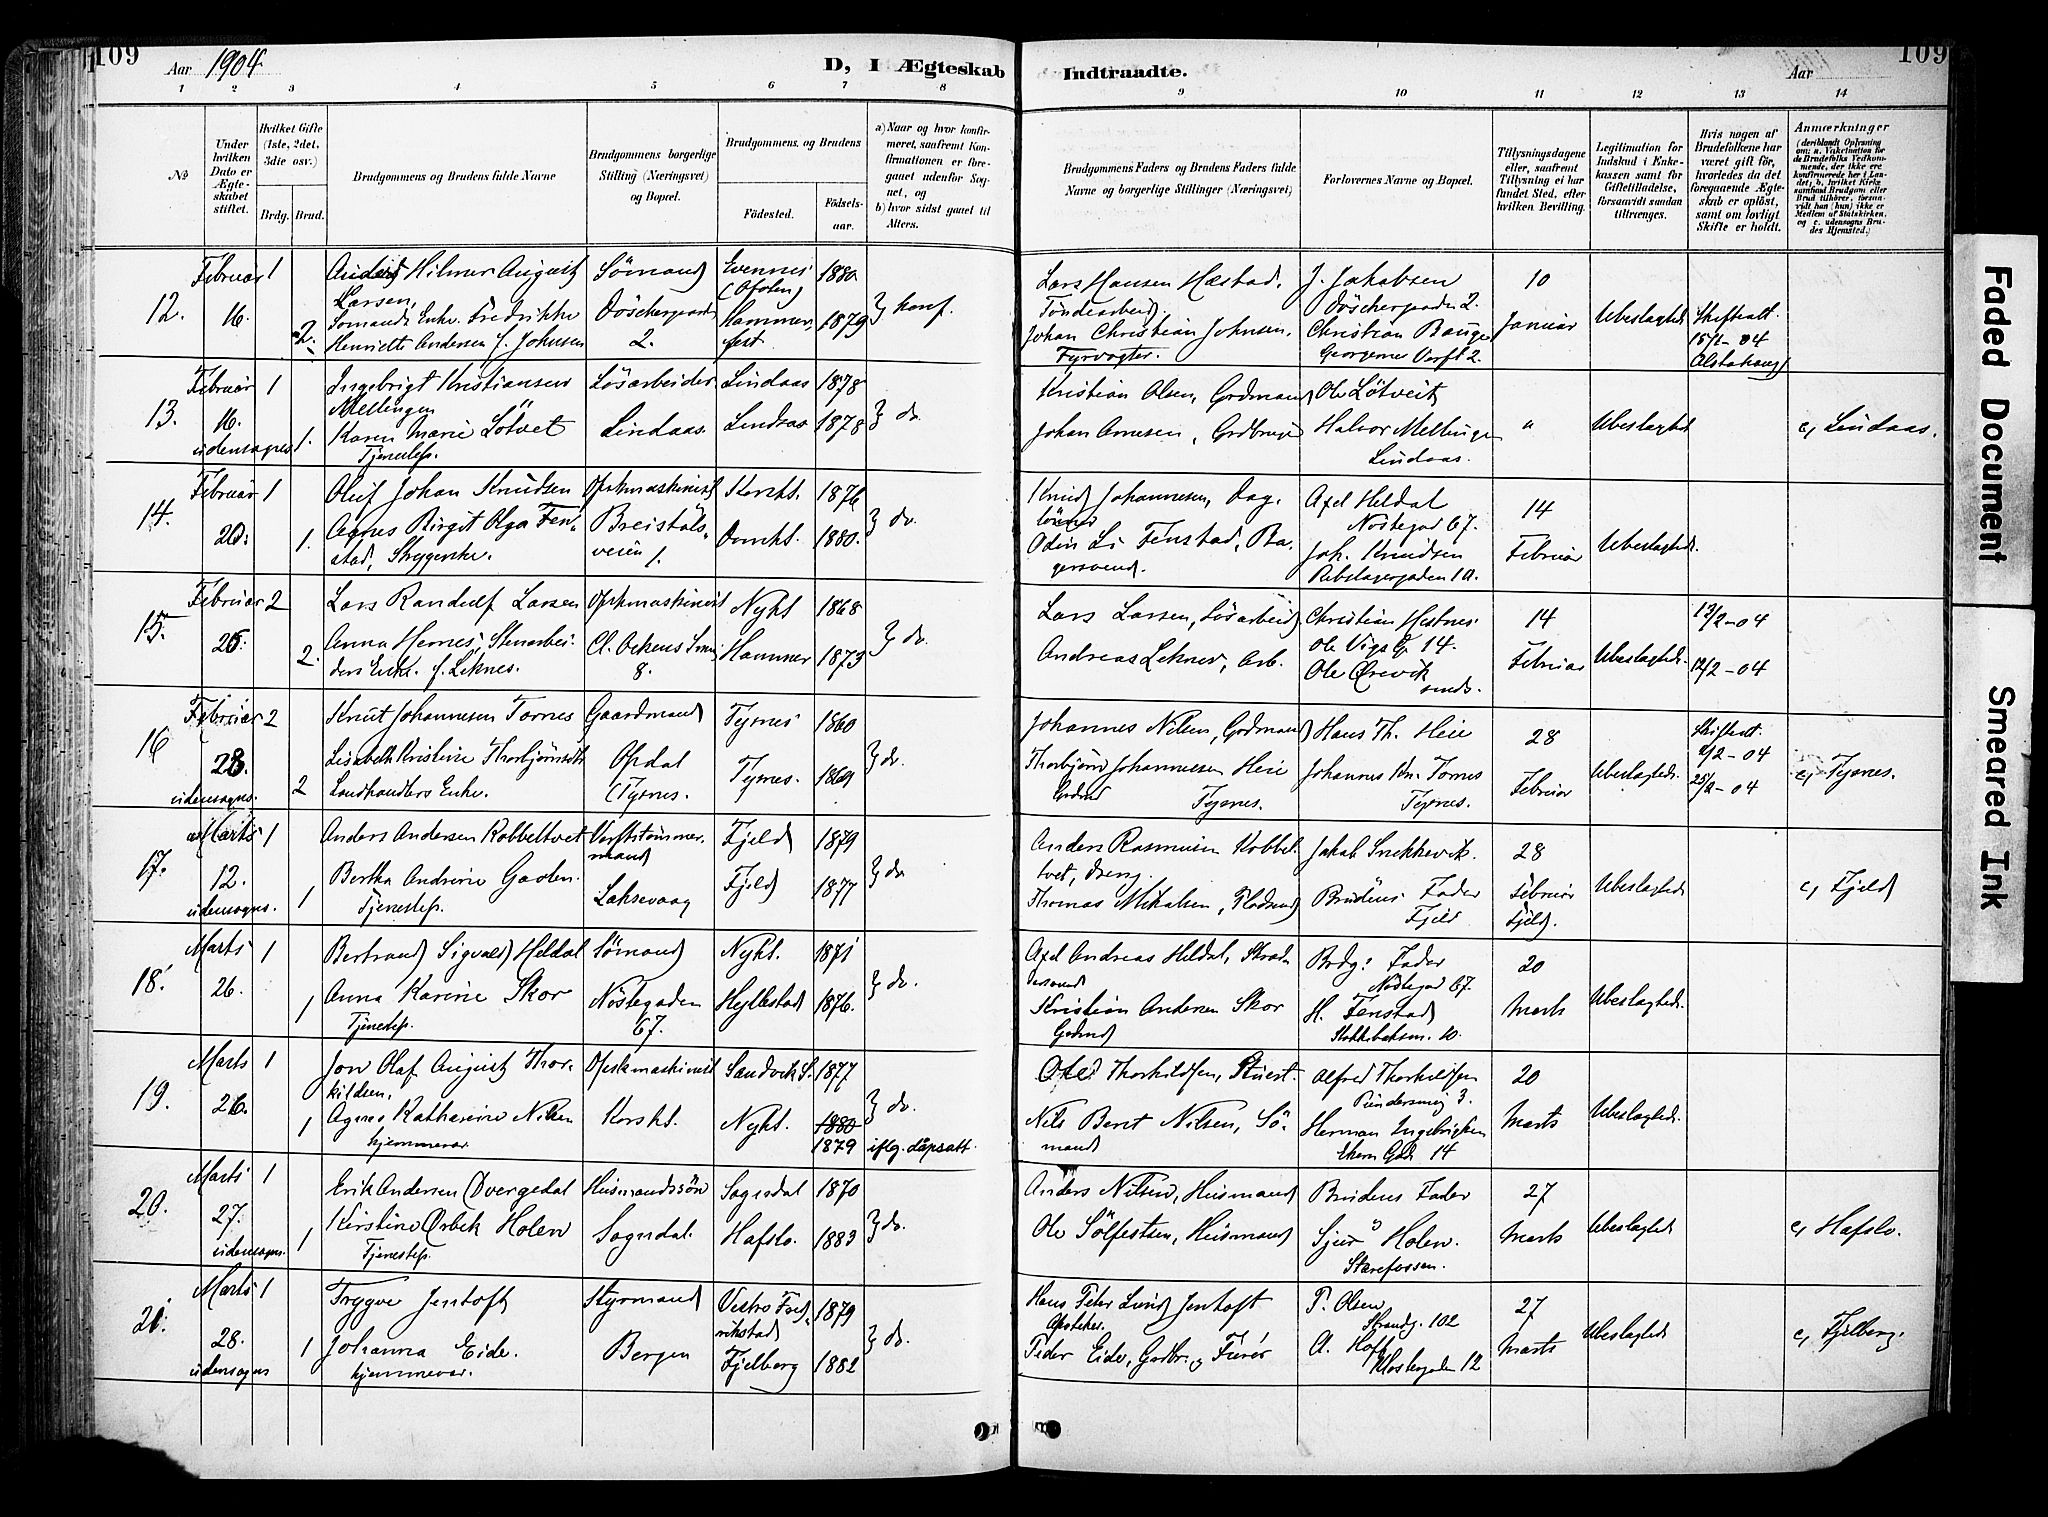 109
109
Aar 1904
D, I Ægteskab Indtraadte.
Aar
1 2 3 4 5 6 7 8 9 10 11 12 13 14
No
Under hvilken Dato er Ægteskabet stiftet.
Hvilket Gifte (1ste, 2det, 3die osv.)
Brdg. Brud.
Brudgommens og Brudens fulde Navne
Brudgommens borgerlige Stilling (Næringsvei) og Bopæl.
Brudgommens, og Brudens
Fødested.
Fødselsaar.
a) Naar og hvor konfirmeret, saafremt Konfirmationen er foregaaet udenfor Sognet, og
b) hvor sidst gaaet til Alters.
Brudgommens Faders og Brudens Faders fulde Navne og borgerlige Stillinger (Næringsvei)
Forlovernes Navne og Bopæl.
Tillysningsdagene eller, saafremt Tillysning ei har fundet Sted, efter hvilken Bevilling.
Legitimation for Indskud i Enkekassen samt for Giftetilladelse, forsaavidt saadan tiltrænges.
Hvis nogen af Brudefolkene har været gift før, hvorledes da det foregaaende Ægteskab er opløst, samt om lovligt Skifte er holdt.
Anmærkninger
(deriblandt Oplysning om: a. Vakcination for de Brudefolks Vedkommende, der ikke ere konfirmerede her i Landet; b. hvilket Kirkesamfund Brudgom eller Brud tilhører, forsaavidt han (hun) ikke er Medlem af Statskirken, og c. udensogns Brudes Hjemsted.)
12. Februar 16. 1 2.
Anders Hilmer August Larsen,
Sømands Enke. Fredrikke
Henriette Andersen f. Johnsen
Sømand
2.
Evennes (Ofoten) 1880
Hammerfest 1879
konf.
Lars Hansen Hæstad,
Tøndearbeid.
Johan Christian Johnsen,
Fyrvogter.
J. Jakobsen
2.
Christian Bauge
Georgernes Verft 2.
10 Januar
Ubeslægtede
Skifteatt.
15/1-04
Alstahaug
13. Februar 16. udensogns 1 1.
Ingebrigt Kristiansen
Mellingen
Karen Marie Løtvet
Tjenestep.
Løsarbeider
Lindaas.
Lindaas 1878
Lindaas 1878
do.
Kristian Olsen, Grdmand
Johan Arnesen, Grdbruger
Ole Løtveit
Halvor Mellingen
Lindaas.
"
Ubeslægted
c, Lindaas.
14. Februar 20. 1 1.
Oluf Johan Knudsen
Agnes Birgit Olga Fenstad, Strygerske.
Opskmaskinist
Breistølsveien 1.
Korskk. 1876
Domkk. 1880.
do.
Knud Johannesen, Dagløner
Odin Li Fenstad, Bagersvend.
Axel Heldal
Nøstegad 67.
Joh. Knudsen
Rebslagergaden 10.
14 Februar
Ubeslægtede.
15. Februar 25. 2 2.
Lars Randulf Larsen
Anna Hernes, Stenarbeiders Enke. f. Leknes.
Opskmaskinist
8.
Nykk 1868
Hammer 1873
do.
Lars Larsen, Løsarbeid
Andreas Leknes, Arb.
Christian Hestnes
Ole Vigs G. 14.
Ole Ørevik
14 Februar
Ubeslægtede.
13/2-04
12/2-04
16 Februar 28. udensogns. 2 2
Knut Johannesen Tornes
Lisabeth Kristine Thorbjørnsdtr
Landhandlers Enke.
Gaardmand
Opdal
(Tysnes.
Tysnes 1860
Tysnes. 1869
do.
Johannes Nilsen, Grdmand
Thorbjørn Johannesen Heie
Grdmd Tysnes.
Hans Th. Heie
Johannes Kn. Tornes
Tysnes.
28 Februar
Ubeslægtede.
Skifteatt.
/2-04
25/2-04
c, Tysnes.
17. Marts 12. udensogns. 1 1
Anders Andersen Kobbeltvet
Bertha Andrine Gaden
Tjenestep.
Verftstømmermand
Laksevaag
Fjeld 1879
Fjeld 1877
do
Anders Rasmusen Kobbeltvet, Dreng.
Thomas Mikalsen,
Jakob Snekkevik.
Brudens Fader
Fjeld
28 Februar Fjeld.
Ubeslægtede
c, Fjeld
18. Marts 26. 1 1
Bertrand Sigvald Heldal
Anna Karine Skor
Tjenestep.
Sømand
Nøstegaden 67.
Nykk. 1871
Hyllestad 1876.
do.
Axel Andreas Heldal,
Kristian Andersen Skor
Grdmd
Brdg: Fader
Nøstegad 67
H. Fenstad
10.
20 Marts
Ubeslægtede.
19. Marts 26. 1 1
Jon Olaf August Thorkildsen,
Agnes Katharine Nilsen
hjemmevær.
Opskmaskinist
Korskk.
Sandvik S. 1877
Nykk. 1880 1879
do.
iflg. dåpsatt.
Ole Thorkildsen, Stuert.
Nils Berent Nilsen, Sømand
Alfred Thorkildsen
3.
Herman Ingebrigtsen
14
20 Marts
Ubeslægtede.
20. Marts 27. udensogns. 1 1
Erik Andersen Dvergedal
Kirstine Ørbek Holen
Tjenestep.
Husmandssøn
Sogndal.
Sogndal 1870
Hafslo. 1883
do.
Anders Nilsen, Husmand
Ole Sølfestsen, Husmand
Brudens Fader
Sjur Holen.
Starefossen.
27 Marts
Ubeslægted
c, Hafslo.
21. Marts 28. udensogns 1 1
Trygve Jentoft
Johanna Eide.
hjemmevær.
Styrmand
Bergen
Vestre Fredrikstad 1879
Fjelberg 1882
do.
Hans Peter Lund Jentoft
Apotheker.
Peder Eide, Grdbr.
P. Olsen
Strandg. 102
A. Hoff
Klostergaden 12
27 Marts
Ubeslægted
c, Fjelberg.
Faded Document
Smeared Ink